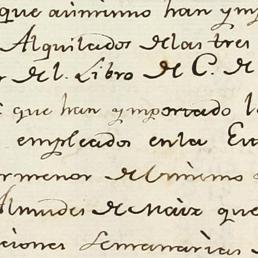 que asimismo han ymp
Alquilados de las tres
de l. Libro de C. de
que han ymportado l
empleados en la
ermenor de l mismo
Almudes de Maiz que
ciones Semanarias